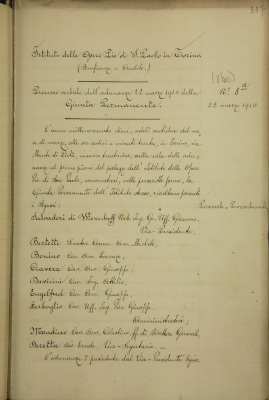 Istituto delle Opere Pie di S. Paolo in Torino
(Beneficenza e Credito)
Processo verbale dell'adunanza 22 marzo 1910 della
Giunta Permanente.
N.° 8
22 marzo 1910
L'anno millenovecento dieci, addì ventidue del me-
se di marzo, alle ore sedici e minuti trenta, in Torino, via
Monte di Pietà, numero trentadue, nella sala delle adu-
nanze al primo piano del palazzo dell'Istituto delle Opere
Pie di San Paolo,
Giunta Permanente dell'Istituto stesso,
Signori:
Salvadori di Wiesenhoff Nob. Ing. Cav. Uff. Giacomo,
Vice Presidente,
Bertetti Michele,
Bonino Cav. Avv. Lorenzo,
Cravero Cav. Avv. Giuseppe,
Davicini Cav. Ing. Attilio,
Engelfred Cav. Avv. Giuseppe,
Zerboglio Cav. Uff. Ing. Pier Giuseppe,
Amministratori;
Mondino Cav. Avv. Celestino ff. di Direttore Generale,
Baretta Vice-Segretario
L'adunanza è presieduta dal Vice-Presidente Signor